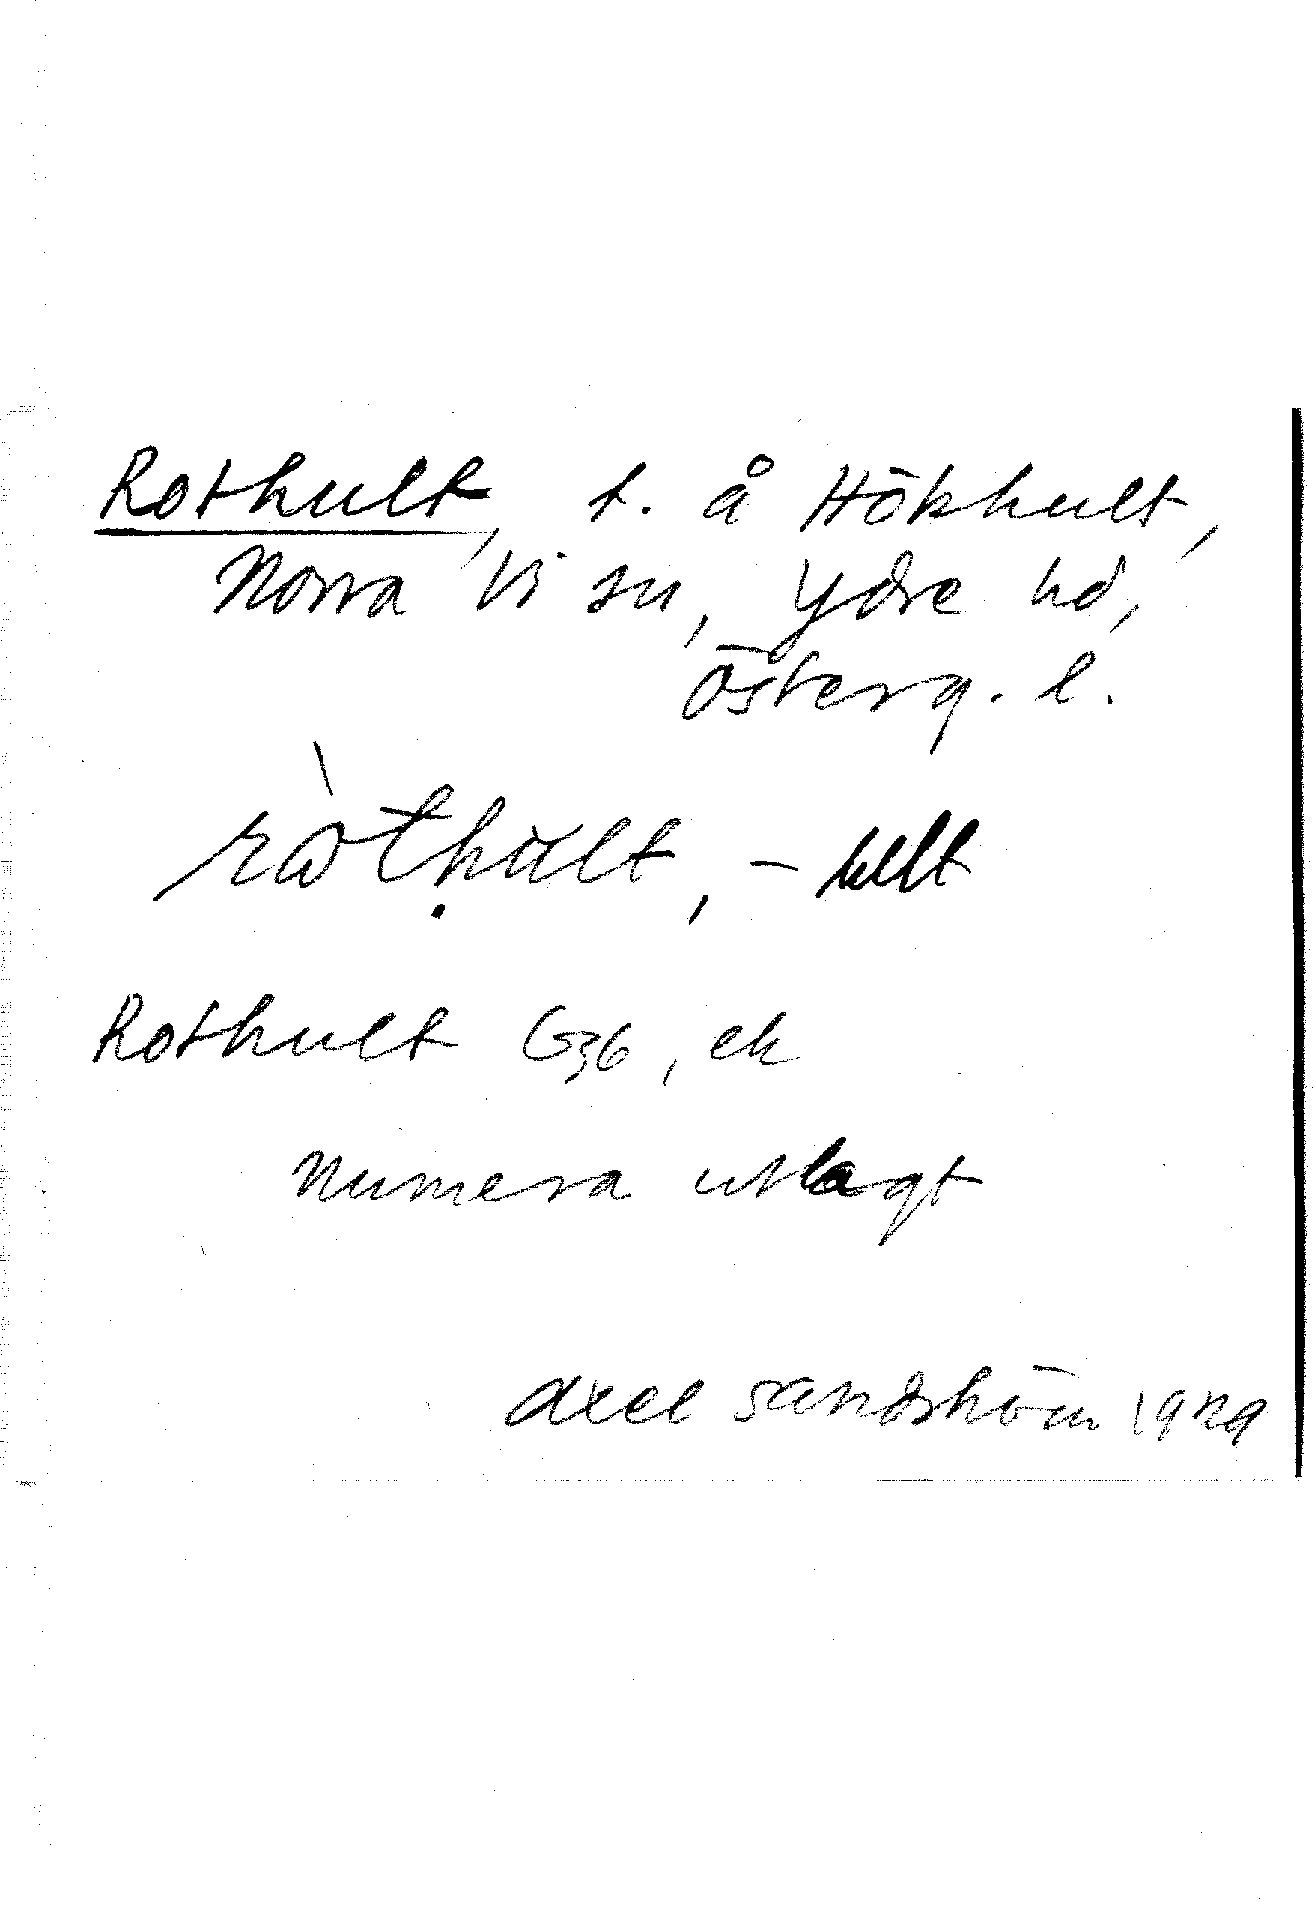 Rothult, t. å Hökhult,
Norra Vi sn, Ydre hd,
Österg. l.
ròthult, -ullt
Rothult G36, ek
Numera utlagt
Axel Sandström 1929